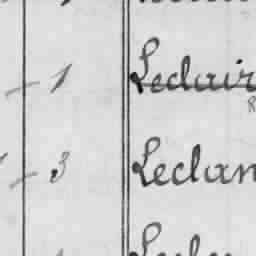 - 1 Leclair
- 3 Leclan